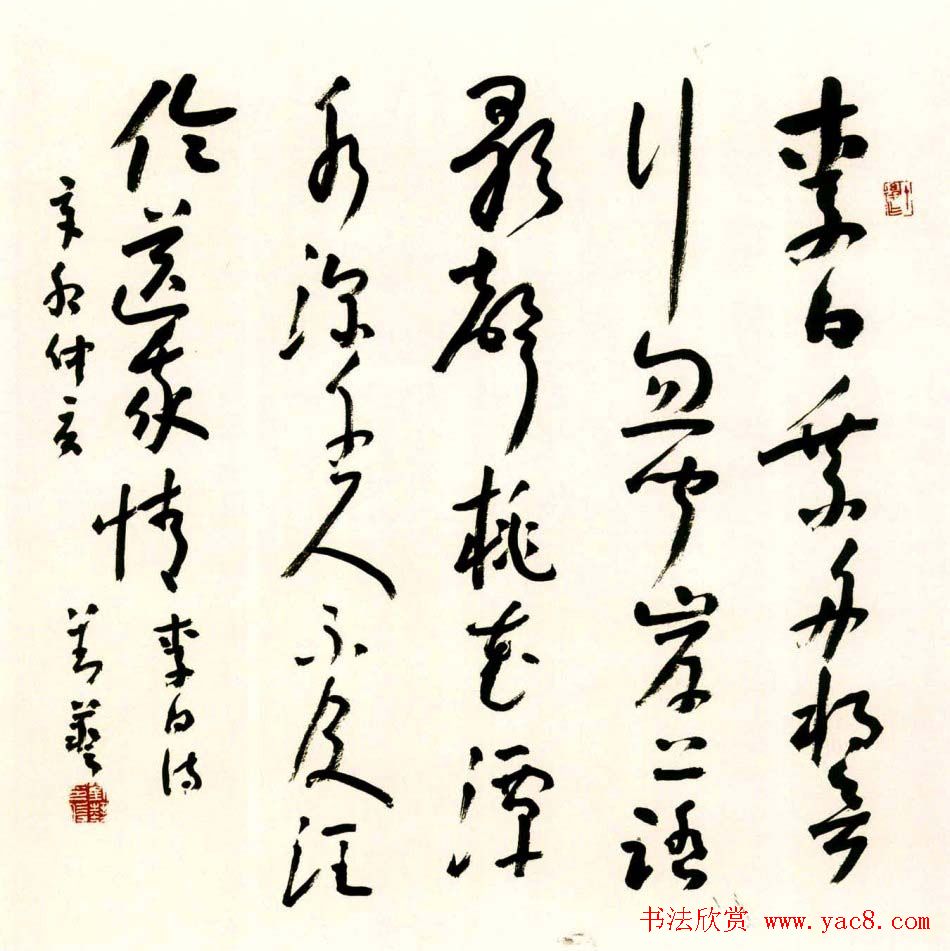 李白乘舟將欲
行忽聞岸上踏
歌聲桃花潭
水深千尺不及汪
倫送我情 李白詩
辛卯仲夏
书法欣赏 www.yac8.com